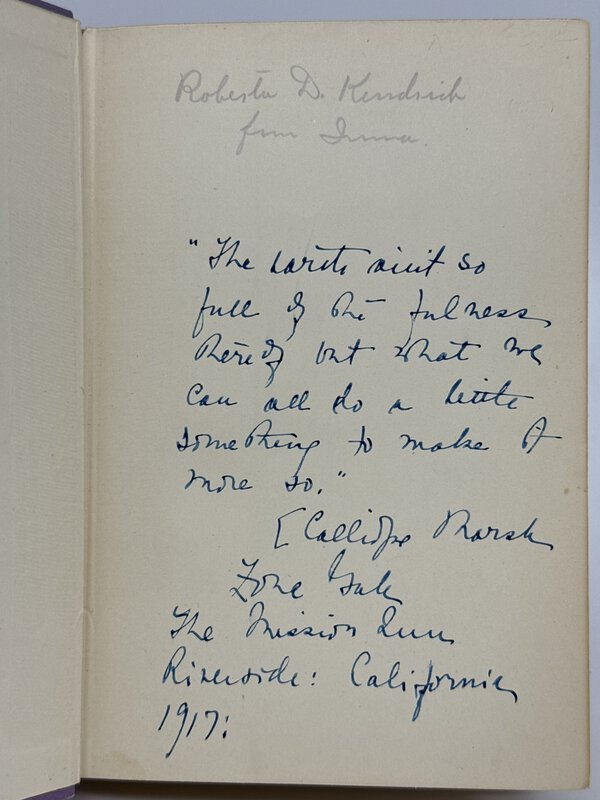 Roberta D. Kendrick
from Irma.
"The earth ain't so
full of the fulness
thereof but what we
can all do a little
something to make it
more so."
[Calliope Marsh
Zona Gale
The Mission Inn
Riverside: California
1917: